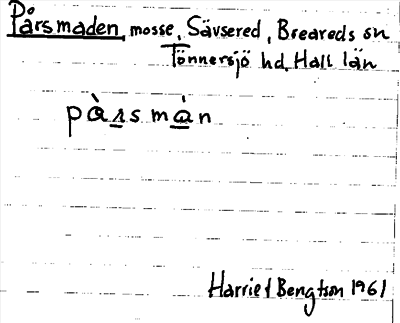 Pårsmaden, mosse, Sävsered, Breareds sn
Tönnersjö hd, Hall län
pàrsmàn
Harriet Bengtson 1961